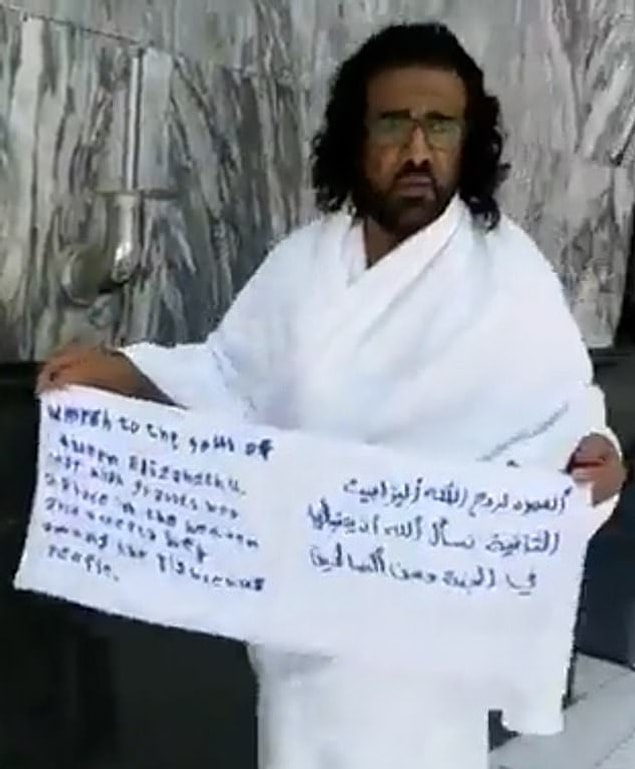 umrah to the soul of
queen Elizabeth II,
grants her
a place in the heaven
and accepts her
among the righteous
people.
ألعمره لروح الملكه أليزابيث
الثانية نسأل ألله أن يتقبلها
في الجنة ومن ألصالحين